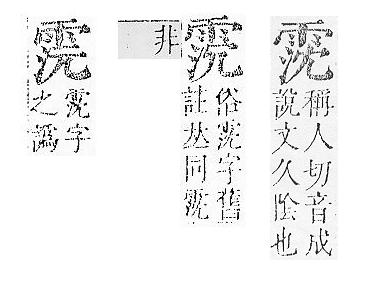 霃
稱人切音成
說文久陰也
俗霃字舊
註夶同霃
非
霃字
之譌